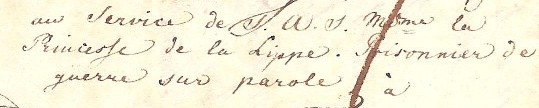 au Service de S. A. S. Mdme la
Princesse de la Lippe. Prisonnier de
guerre sur parole à